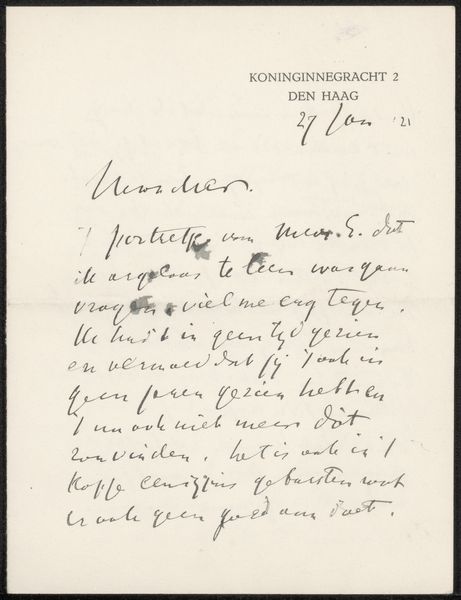 KONINGINNEGRACHT 2
DEN HAAG
27 Jan '21
't portretje van Mevr. E. dat
ik argeloos te leen was gaan
vragen, viel me erg tegen.
Ik had 't in geen tijd gezien
en vermoed dat zij 't ook in
geen jaren gezien hebben
't nu ook niet meer dàt
zou vinden. het is ook in 't
kopje eenigzins gebarsten wat
er ook geen goed aan doet.